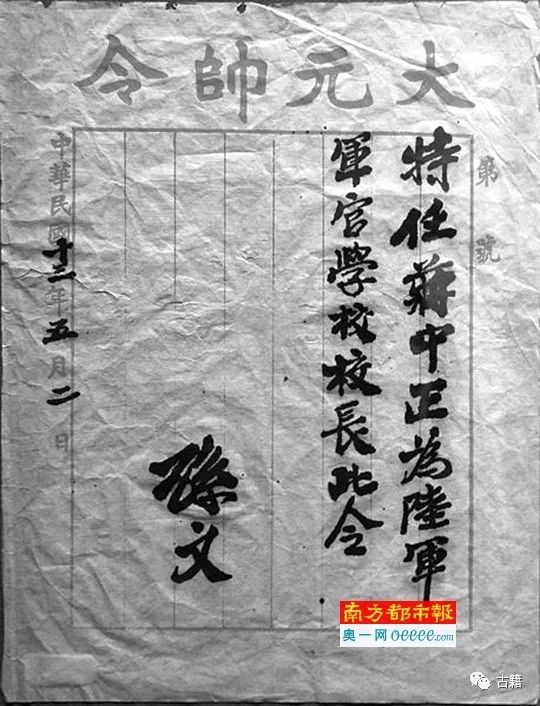 大元帥令
第 號
特任蔣中正為陸軍
軍官學校校長此令
孫文
中華民國十三年五月二日
南方都市報
奥一网oeeee.com
古籍